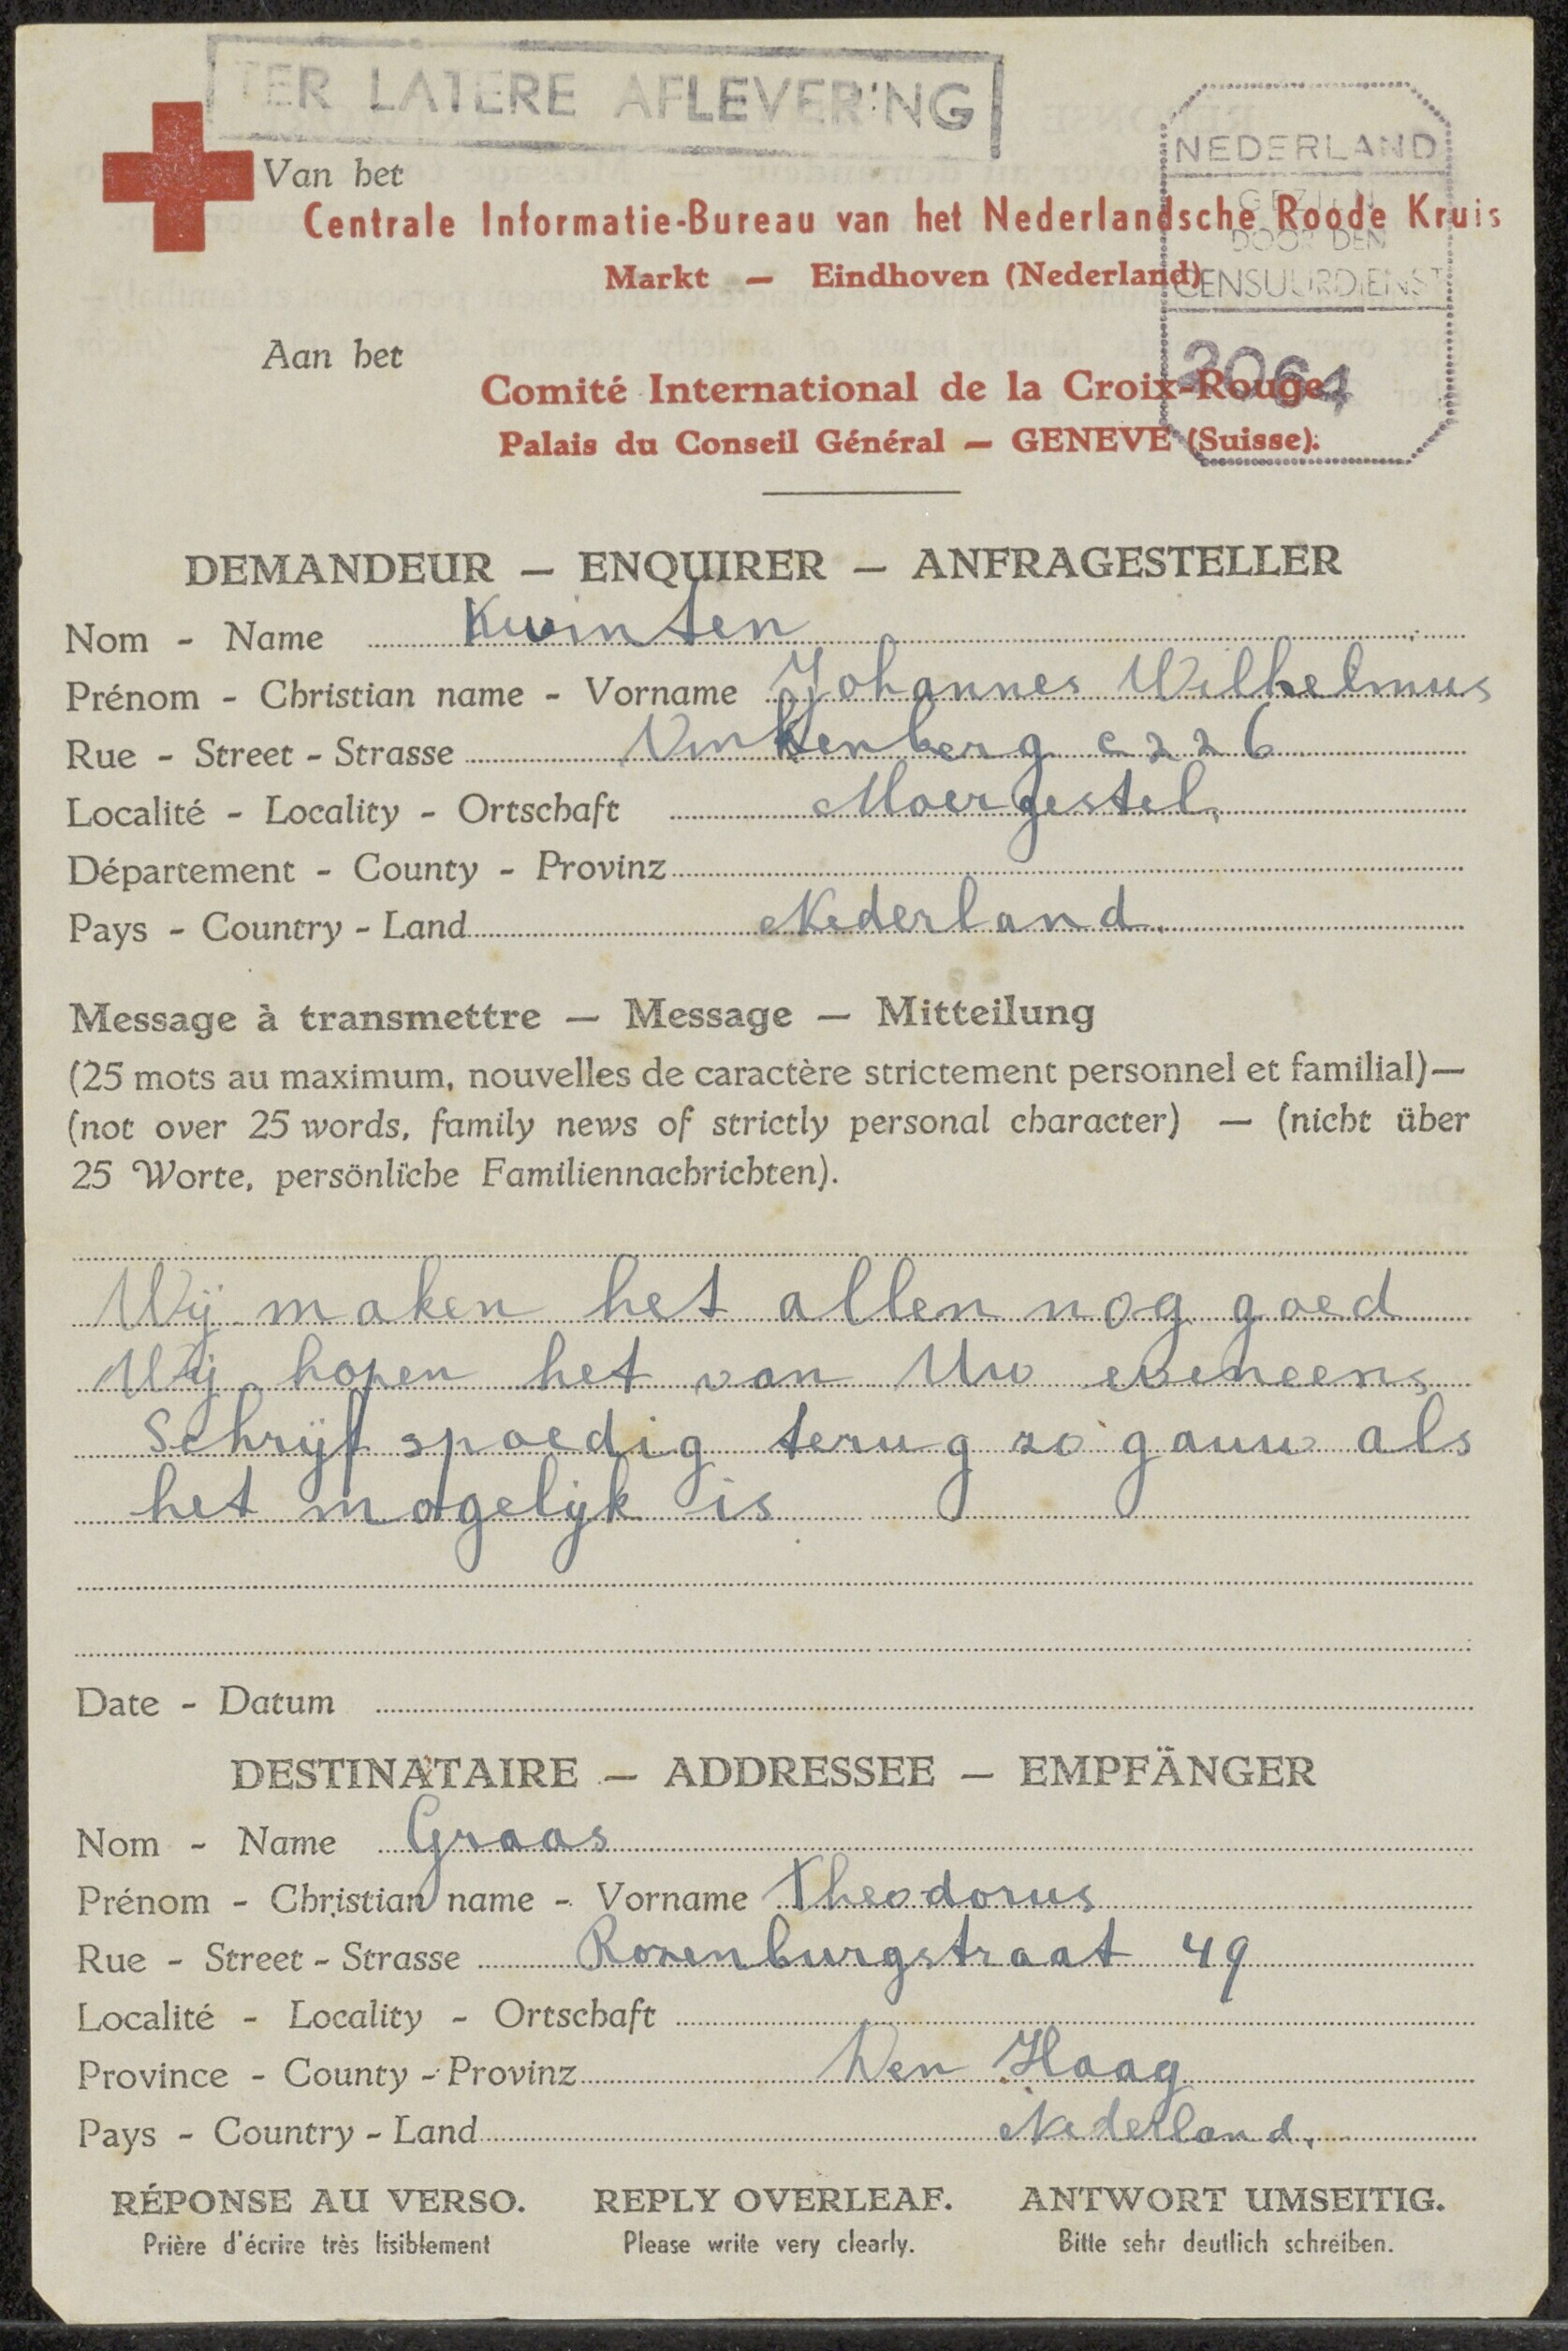 TER LATERE AFLEVERING
NEDERLAND
GEZIEN
DOOR DEN
CENSUURDIENST
2064
Van het
Centrale Informatie-Bureau van het Nederlandsche Roode Kruis
Markt — Eindhoven (Nederland)
Aan het
Comité International de la Croix-Rouge
Palais du Conseil Général — GENEVE (Suisse).
DEMANDEUR — ENQUIRER — ANFRAGESTELLER
Nom - Name Kwinten
Prénom - Christian name - Vorname Johannes Wilhelmus
Rue - Street - Strasse Vinkenberg c 226
Localité - Locality - Ortschaft Moergestel.
Département - County - Provinz
Pays - Country - Land Nederland.
Message à transmettre — Message — Mitteilung
(25 mots au maximum, nouvelles de caractère strictement personnel et familial)—
(not over 25 words, family news of strictly personal character) — (nicht über
25 Worte, persönliche Familiennachrichten).
Wij maken het allen nog goed
Wij hopen het van Uw eveneens
Schrijf spoedig terug zo gauw als
het mogelijk is
Date - Datum
DESTINATAIRE — ADDRESSEE — EMPFÄNGER
Nom - Name Graas
Prénom - Christian name - Vorname Theodorus
Rue - Street - Strasse Rozenburgstraat 49
Localité - Locality - Ortschaft
Province - County - Provinz Den Haag
Pays - Country - Land Nederland.
RÉPONSE AU VERSO. REPLY OVERLEAF. ANTWORT UMSEITIG.
Prière d'écrire très lisiblement Please write very clearly. Bitte sehr deutlich schreiben.